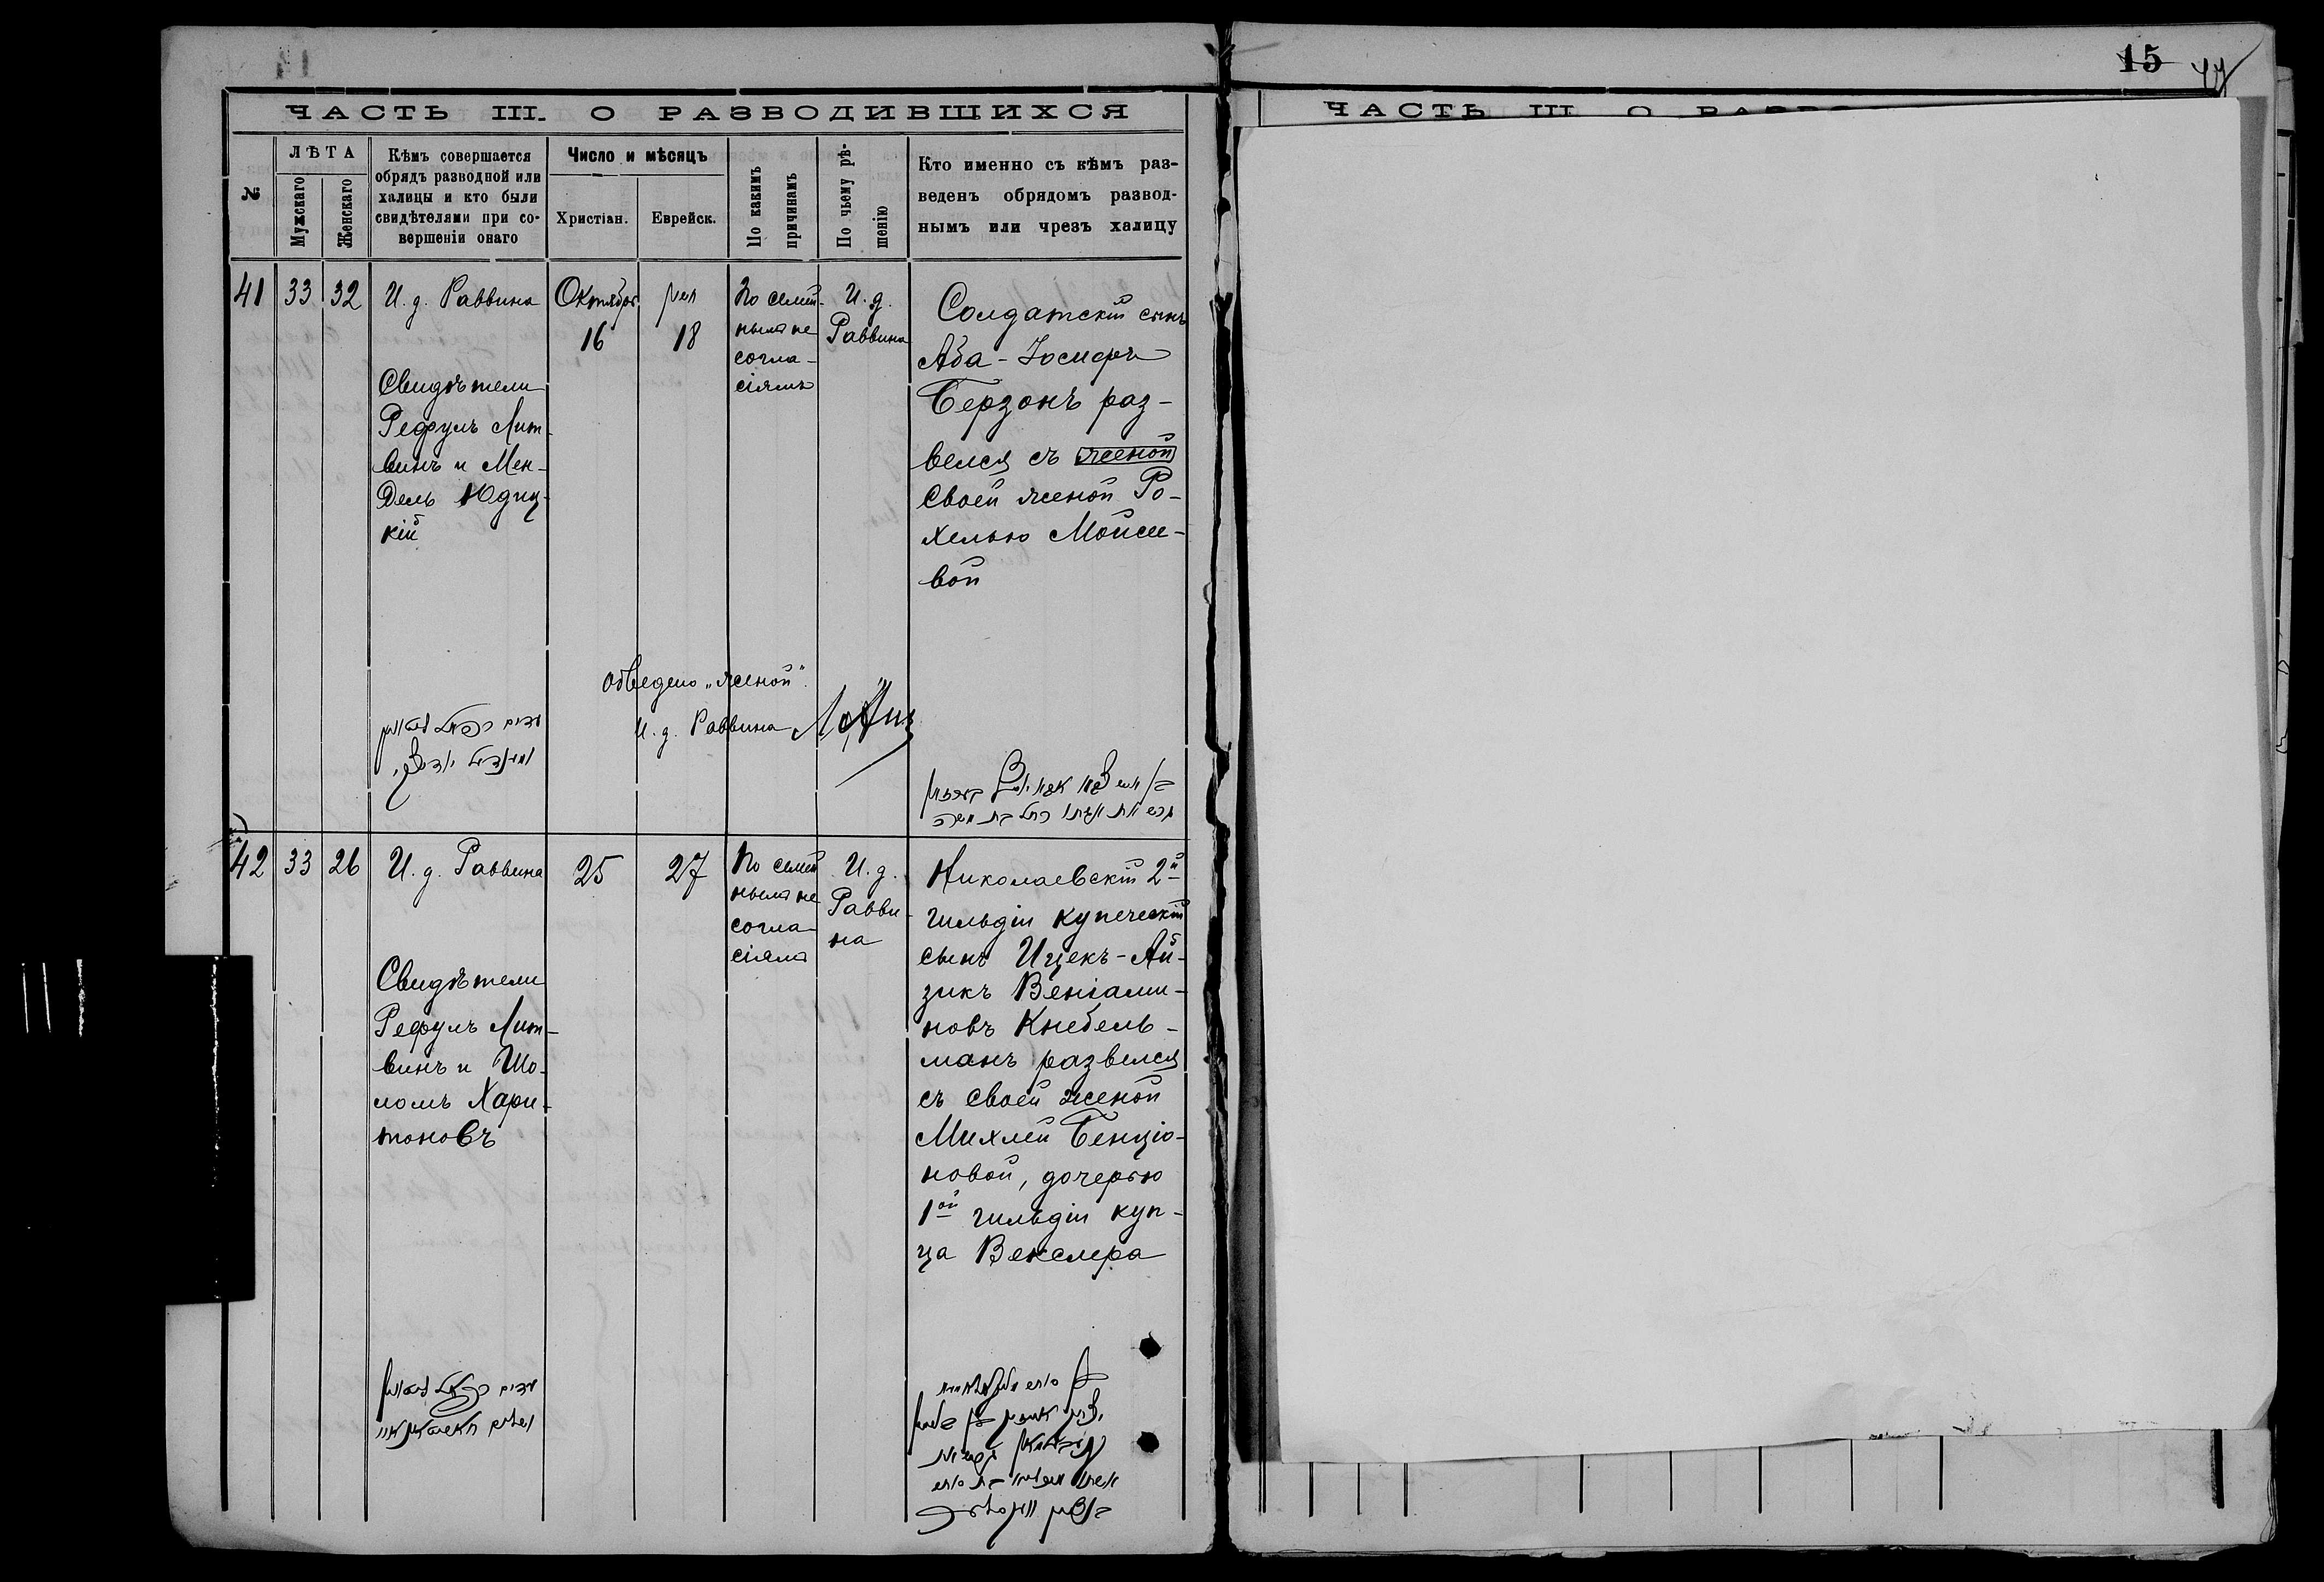 15
ЧАСТЬ III. О РАЗВОДИВШИХСЯ
№
ЛѢТА
Мужскаго
Женскаго
Кѣмъ совершается
обрядъ разводной или
халицы и кто были
свидѣтелями при со-
вершеніи онаго
Число и мѣсяцъ
Христіан.
Еврейск.
По какимъ
причинамъ
По чьему рѣ-
шенію
Кто именно съ кѣмъ раз-
веденъ обрядомъ развод-
нымъ или чрезъ халицу
41
33
32
И. д. Раввина
Свидѣтели
Рефулъ Лит-
винъ и Мен-
дель Юдиц-
кій
Октября
16
חשון
18
По семей-
нымъ не
согла-
сіямъ
И. д.
Раввина
Солдатскій сынъ
Аба-Іосифъ
Берзонъ раз-
велся съ женой
своей женой Ро-
хелью Мойсе-
вой
Обведено „женой".
И. д. Раввина
42
33
26
И. д. Раввина
Свидѣтели
Рефулъ Лит-
винъ и Шо-
ломъ Хари-
тоновъ
25
27
По семей
нымъ не
согла
сіямъ
И. д.
Равви-
на
Николаевскій 2й
гильдіи купеческій
сынъ Ицекъ-Ай-
зикъ Веніами-
новъ Кнебель-
манъ развелся
съ своей женой
Михлей Бенціо-
новой, дочерью
1ой гильдіи куп-
ца Векслера
ЧАСТЬ III О